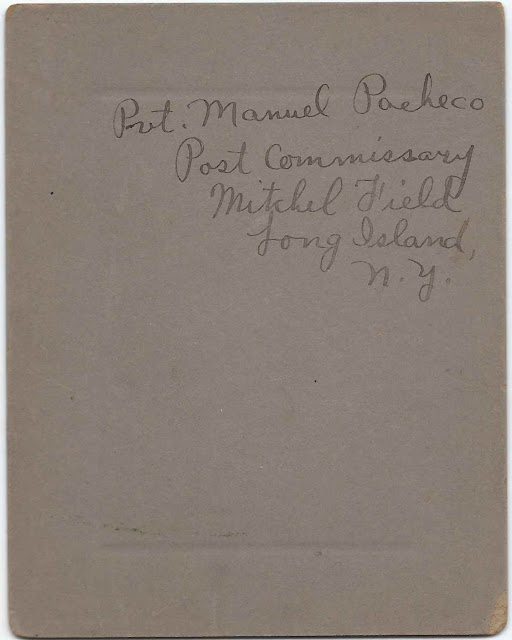 Pvt. Manuel Pacheco
Post Commissary
Mitchel Field
Long Island,
N.Y.